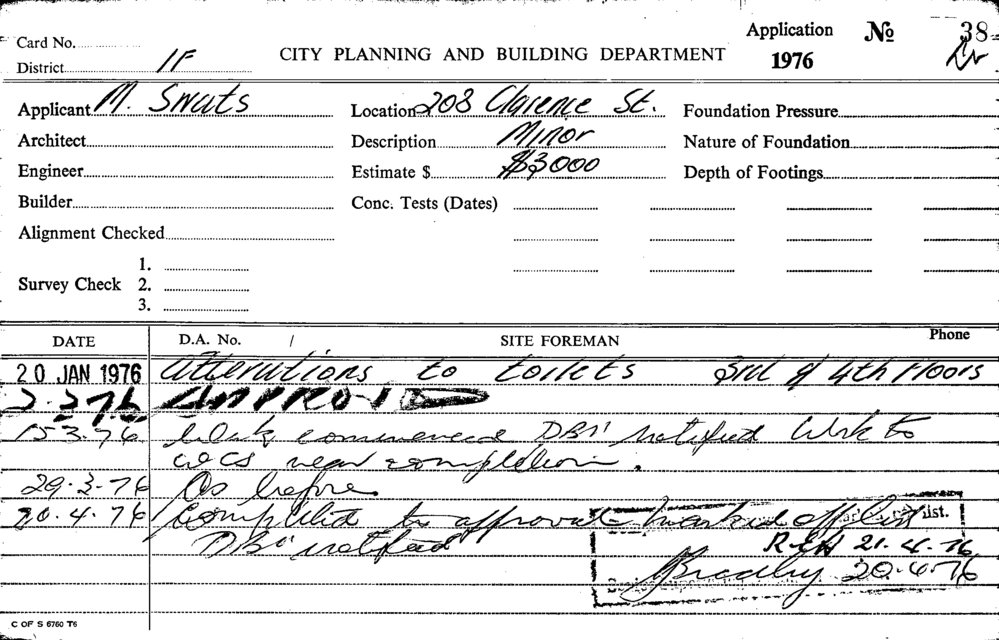 Card No.
District 1F
CITY PLANNING AND BUILDING DEPARTMENT
Application No 38
1976
Applicant M. Swats
Location 208 Clarence St.
Foundation Pressure
Architect
Description Minor
Nature of Foundation
Engineer
Estimate $ $3000
Depth of Footings
Builder
Conc. Tests (Dates)
Alignment Checked
Survey Check
1.
2.
3.
DATE D.A. No. / SITE FOREMAN Phone
20 JAN 1976 Alterations to toilets 3rd & 4th Floors
15.3.76 Work commenced DBS' notified Work to
WCs near completion.
29.3.76 As before
20.4.76 Completed to approval marked off list
DBS' notified
list.
REH 21.4.76
20.4.76
C OF S 6760 T6